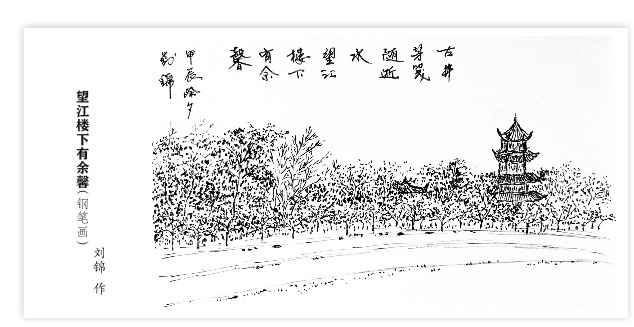 古井
芳笺
随逝
水
望江
楼下
有余
馨
甲辰除夕
刘锦
望江楼下有余馨（钢笔画）
刘锦 作